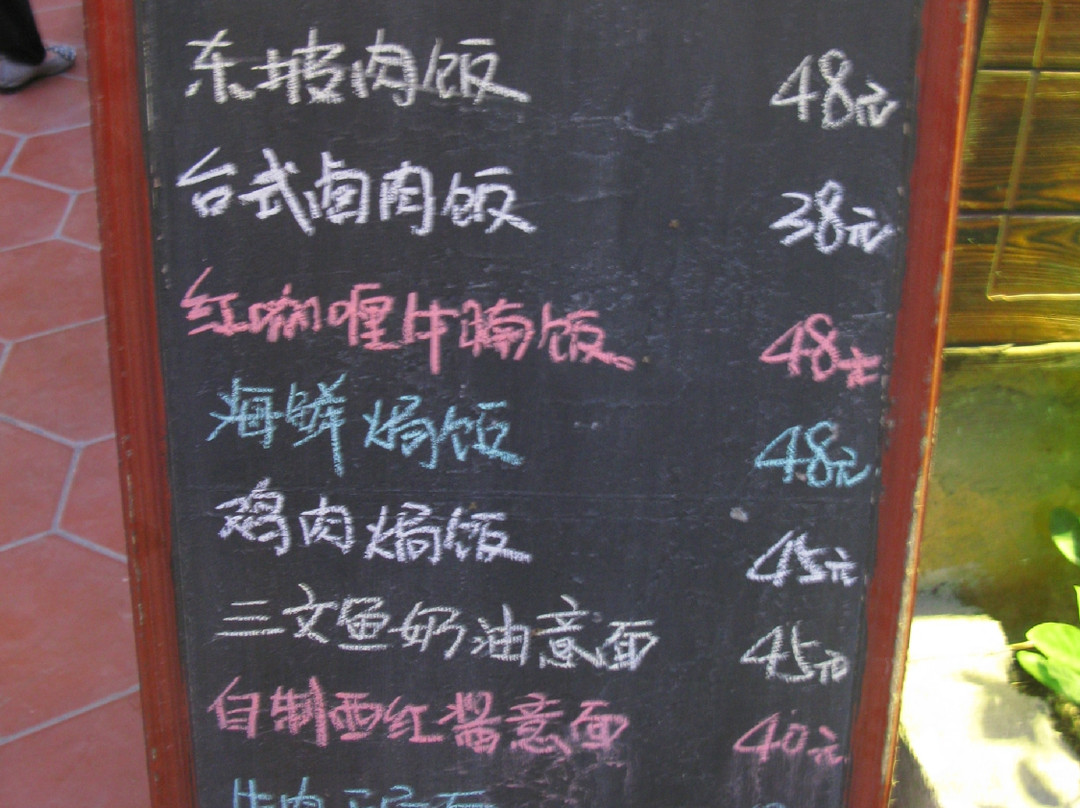 东坡肉饭 48元
台式卤肉饭 38元
红咖喱牛腩饭 48元
海鲜焗饭 48元
鸡肉焗饭 45元
三文鱼奶油意面 45元
自制西红酱意面 40元